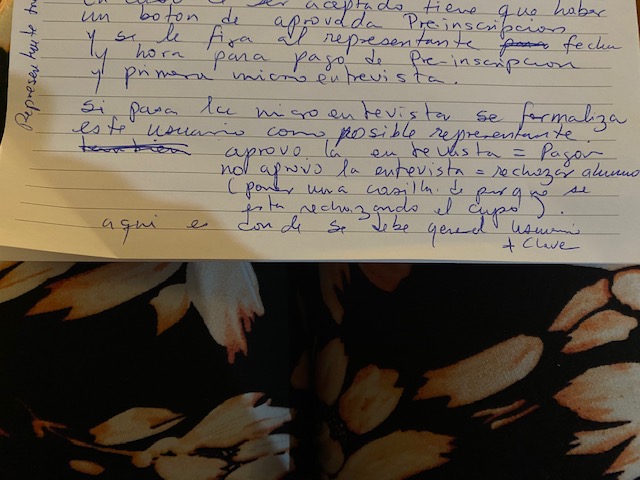 En caso de ser aceptado tiene que haber
un boton de aprovada Pre-inscripcion
y se le fija al representante para fecha
y hora para pago de Pre-inscripcion
y primera micro entrevista.
Si pasa la micro entrevista se formaliza
este usuario como posible representante
tambien aprovo la entrevista = Pagar
no aprovo la entrevista = rechazar alumno
(poner una casilla de porque se
esta rechazando el cupo).
aqui es donde se debe generar usuario
+ Clave
Representante